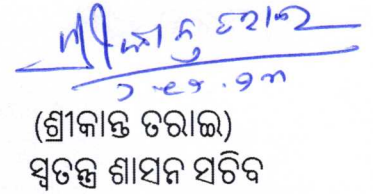 ଶ୍ରୀକାନ୍ତ ତରାଇ
(ଶ୍ରୀକାନ୍ତ ତରାଇ)
ସ୍ୱତନ୍ତ୍ର ଶାସନ ସଚିବ